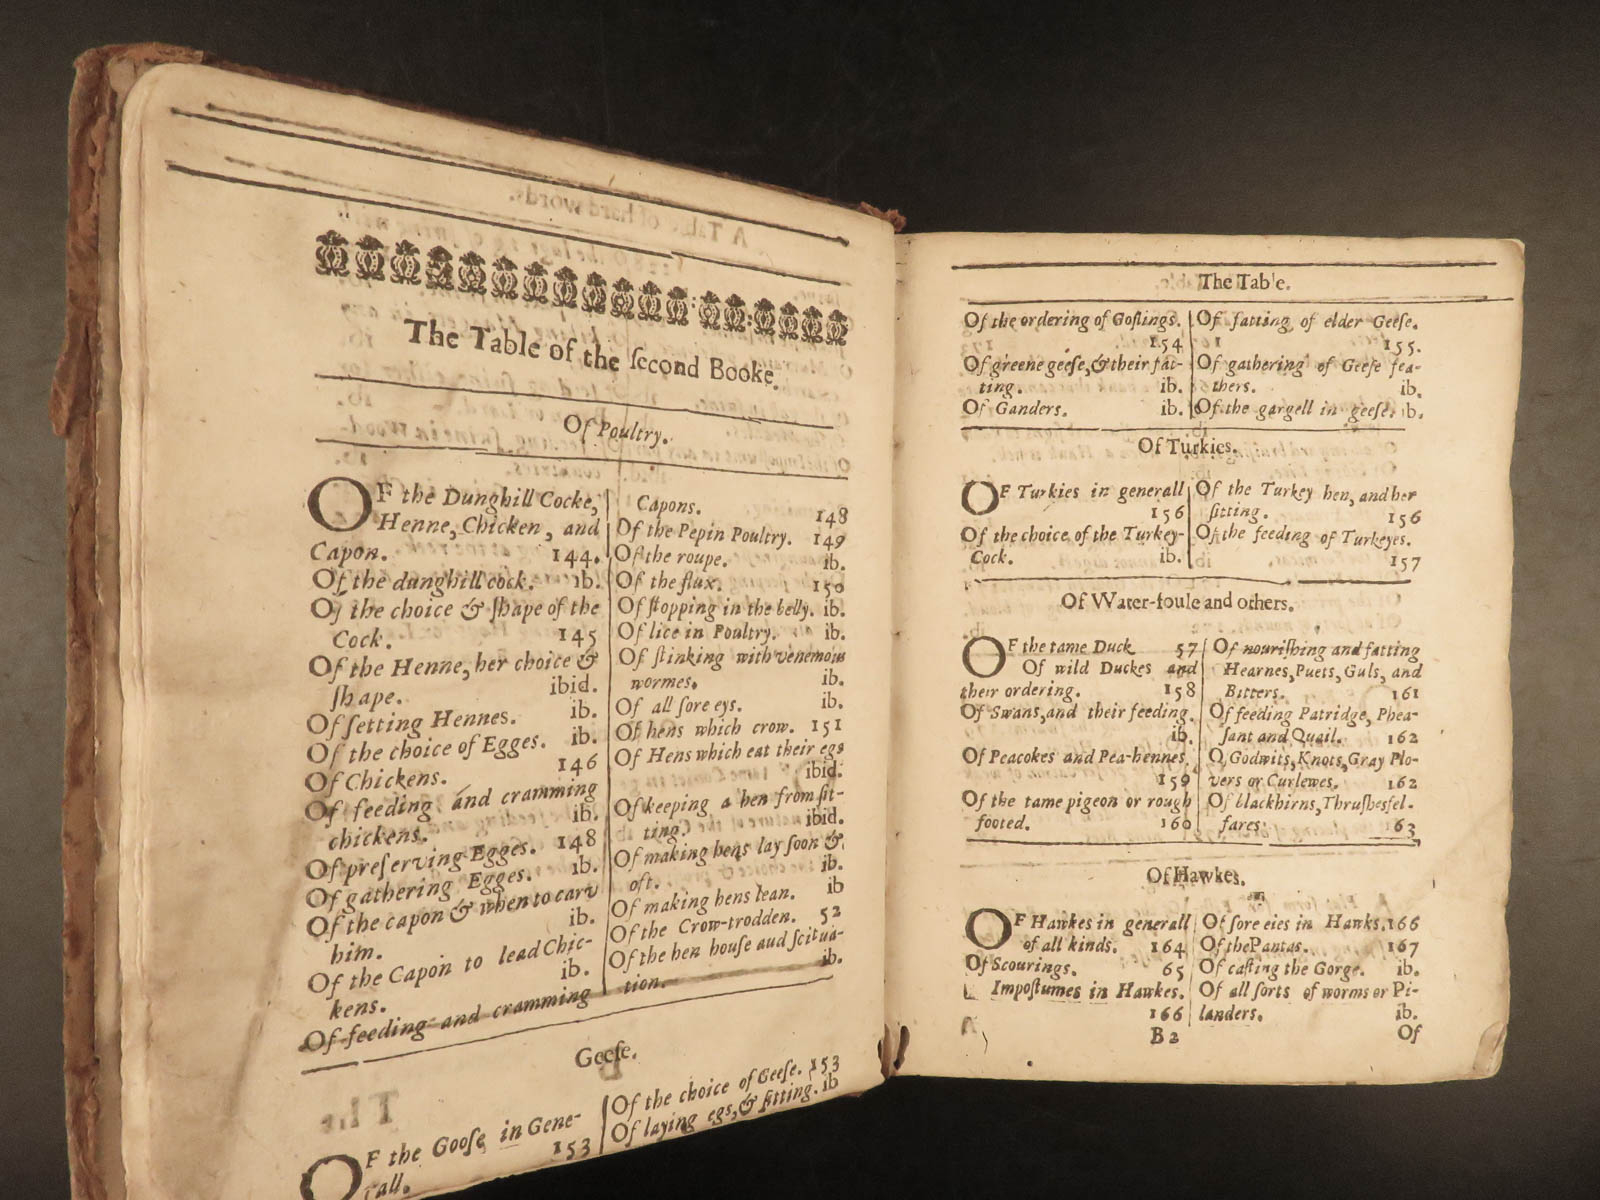 The Table of the ſecond Booke.
Of Poultry.
OF the Dunghill Cocke,
Henne, Chicken, and
Capon. 144.
Of the dunghill cock. ib.
Of the choice & ſhape of the
Cock. 145
Of the Henne, her choice &
ſhape. ibid.
Of ſetting Hennes. ib.
Of the choice of Egges. ib.
Of Chickens. 146
Of feeding and cramming
chickens. ib.
Of preſerving Egges. 148
Of gathering Egges. ib.
Of the capon & when to carv
him. ib.
Of the Capon to lead Chic-
kens. ib.
Of feeding and cramming
Capons. 148
Of the Pepin Poultry. 149
Of the roupe. ib.
Of the flux. 150
Of ſtopping in the belly. ib.
Of lice in Poultry. ib.
Of ſtinking with venemous
wormes. ib.
Of all ſore eys. ib.
Of hens which crow. 151
Of Hens which eat their egs
ibid.
Of keeping a hen from ſit-
ting. ibid.
Of making hens lay ſoon &
oft. ib.
Of making hens lean. ib
Of the Crow-trodden. 52
Of the hen houſe aud ſcitua-
tion. ib.
Geeſe.
OF the Gooſe in Gene-
rall. 153
Of the choice of Geeſe. 153
Of laying egs, & ſitting. ib
The Table.
Of the ordering of Goſlings.
154
Of greene geeſe, & their fat-
ting. ib.
Of Ganders. ib.
Of fatting of elder Geeſe.
155.
Of gathering of Geeſe fea-
thers. ib.
Of the gargell in geeſe. ib.
Of Turkies.
OF Turkies in generall
156
Of the choice of the Turkey-
Cock. ib.
Of the Turkey hen, and her
ſitting. 156
Of the feeding of Turkeyes.
157
Of Water-foule and others.
OF the tame Duck 57
Of wild Duckes and
their ordering. 158
Of Swans, and their feeding.
ib.
Of Peacokes and Pea-hennes.
159
Of the tame pigeon or rough
footed. 160
Of nouriſhing and fatting
Hearnes, Puets, Guls, and
Bitters. 161
Of feeding Patridge, Phea-
ſant and Quail. 162
O Godwits, Knots, Gray Plo-
vers or Curlewes. 162
Of blackbirns, Thruſhesfel-
fares. 63
Of Hawkes.
OF Hawkes in generall
of all kinds. 164
Of Scourings. 65
Impoſtumes in Hawkes.
166
Of ſore eies in Hawks. 166
Of the Pantas. 167
Of caſting the Gorge. ib.
Of all ſorts of worms or Pi-
landers. ib.
B2 Of